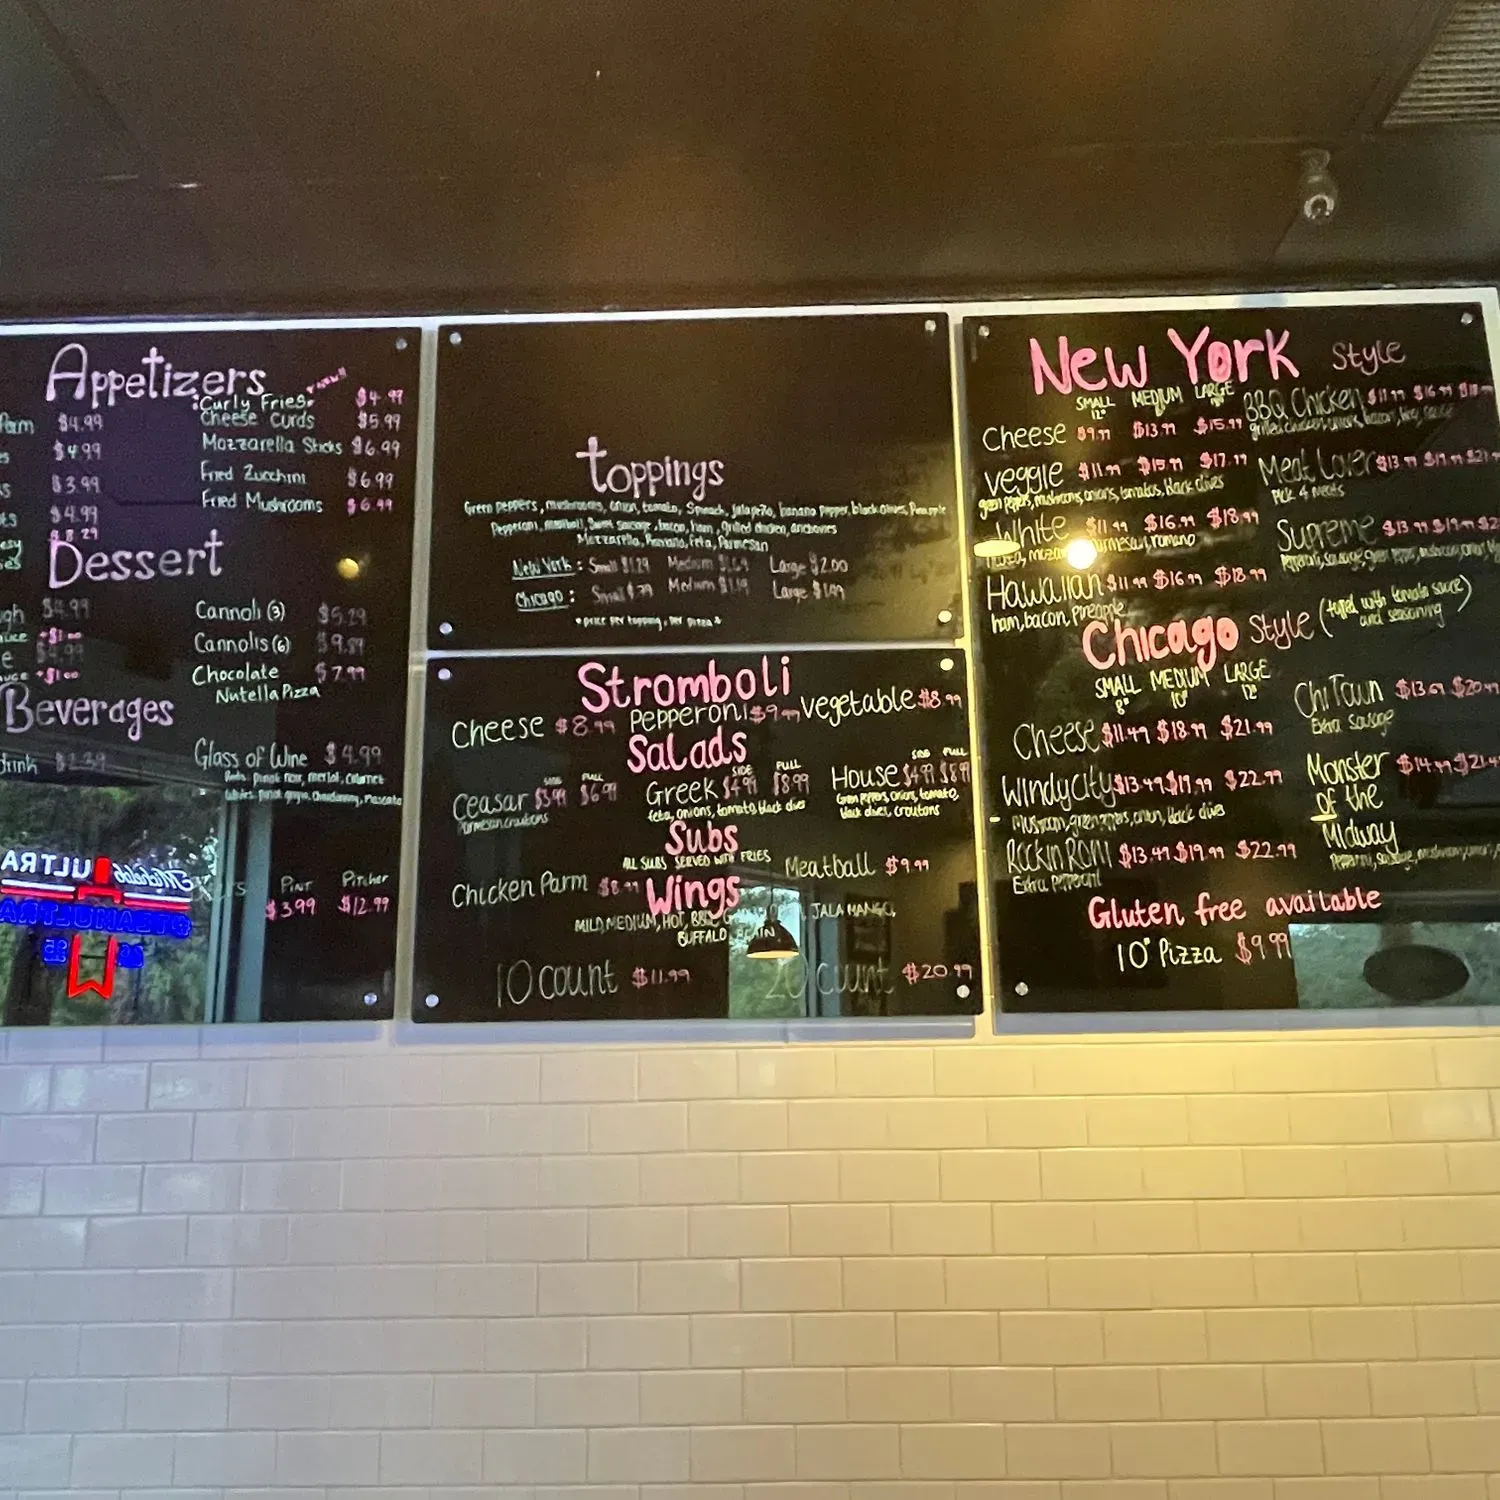 Appetizers
Parm $4.99
$4.99
$3.99
$4.99
$8.29
Curly Fries $4.99
Cheese Curds $5.99
Mozzarella Sticks $6.99
Fried Zucchini $6.99
Fried Mushrooms $6.99
Dessert
$4.99
+$1.00
+$1.00
Cannoli (3) $5.29
Cannolis (6) $9.89
Chocolate $7.99
Nutella Pizza
Beverages
drink $2.39
Glass of Wine $4.99
Reds: pinot noir, merlot, Cabernet
Whites: pinot grigio, Chardonnay, Moscato
Pint Pitcher
$3.99 $12.99
Michelob ULTRA
toppings
Green peppers, mushrooms, onion, tomato, Spinach, Jalapeño, banana pepper, black olives, Pineapple
Pepperoni, meatball, Sweet Sausage, bacon, ham, Grilled chicken, anchovies
Mozzarella, Romano, Feta, Parmesan
New York: Small $1.29 Medium Large $2.00
Chicago: Small Medium $1.19 Large
*price per topping, per pizza*
Stromboli
Cheese $8.99 Pepperoni $9 vegetable $8.99
Salads
Ceasar SIDE $3.99 FULL $6.99
Parmesan, croutons
Greek SIDE $4.99 FULL $8.99
feta, onions, tomato, black olives
House SIDE $4.99 FULL $8.99
Green Peppers, onion, tomato,
black olives, croutons
Subs
ALL SUBS SERVED WITH FRIES
Chicken Parm $8.99 Meatball $9.99
Wings
MILD, MEDIUM, HOT, BBQ, JALA MANGO,
BUFFALO
10 count $11.99 20 count $20.99
New York Style
SMALL 12" MEDIUM LARGE
Cheese $9.99 $13.99 $15.99
Veggie $11.99 $15.99 $17.99
green peppers, mushrooms, onions, tomatoes, black olives
White $11.99 $16.99 $18.99
parmesan, romano
Hawaiian $11.99 $16.99 $18.99
ham, bacon, pineapple
BBQ Chicken $11.99 $16.99
grilled chicken, onion, bacon, bbq sauce
Meat Lover $13.99 $19.99 $21
Pick 4 meats
Supreme $13.99 $19.99 $2
Pepperoni, sausage, green pepper, mushroom, onion
Chicago Style (topped with tomato sauce and seasoning)
SMALL 8" MEDIUM 10" LARGE 12"
Cheese $11.49 $18.99 $21.99
Windy City $13.49 $19.99 $22.99
Mushroom, green peppers, onion, black olives
Rockin Roni $13.49 $19.99 $22.99
Extra Pepperoni
Chi Town $20
Extra sausage
Monster of the Midway $14.99 $21.4
Pepperoni, sausage, mushroom, onion,
Gluten free available
10" Pizza $9.99